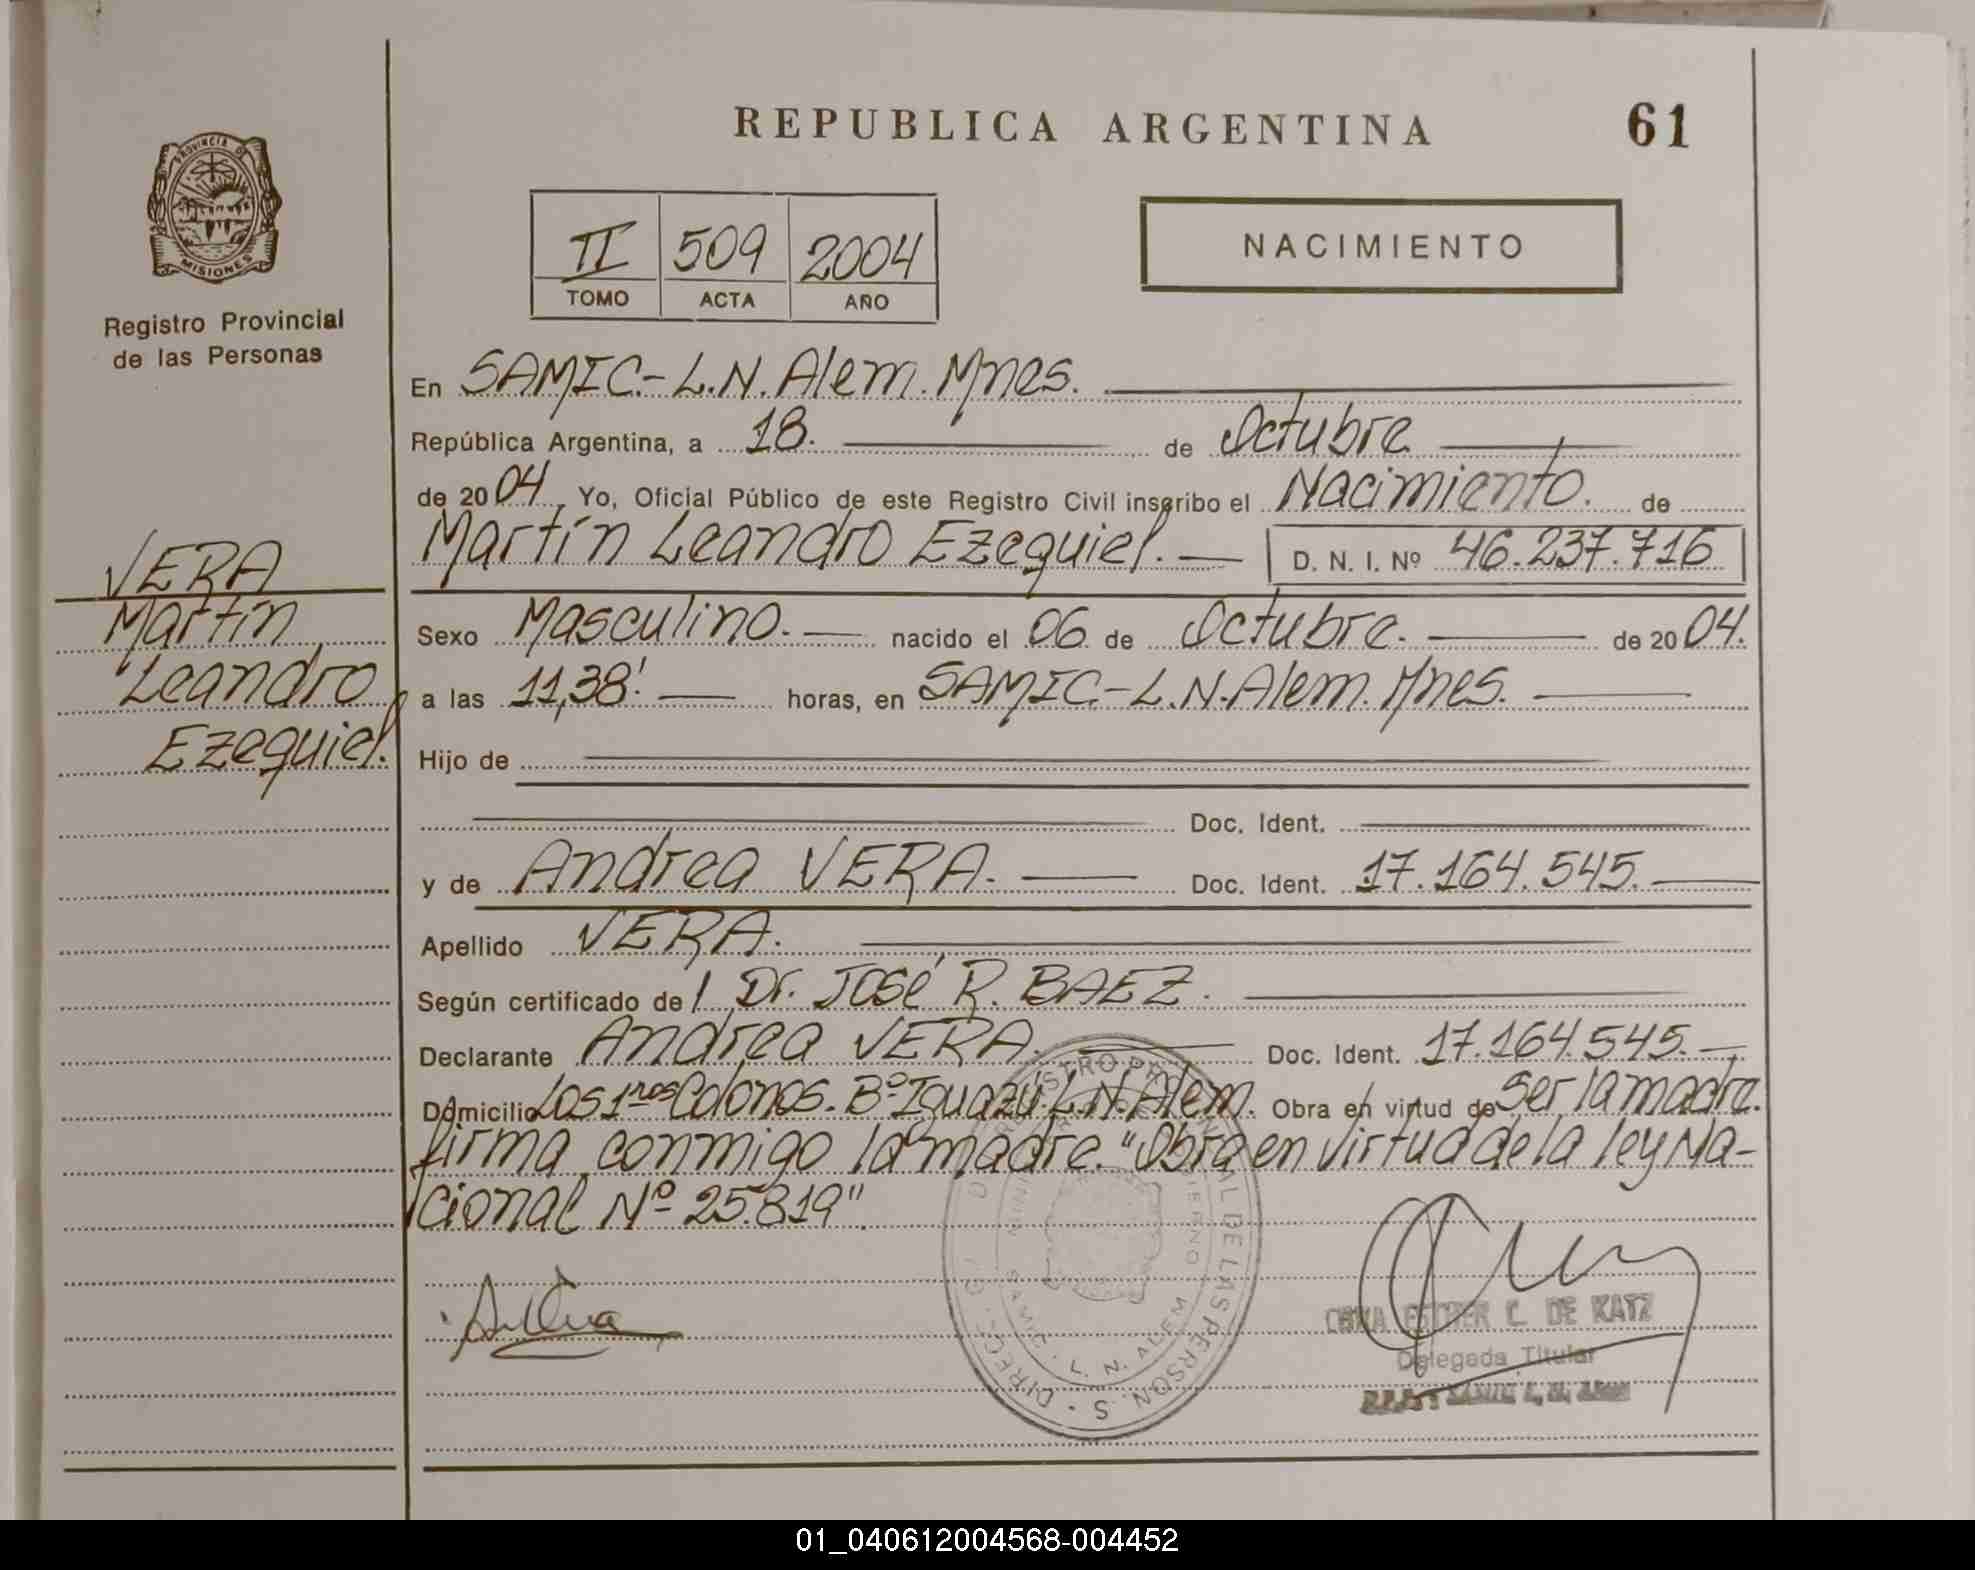 REPUBLICA ARGENTINA
61
PROVINCIA DE
MISIONES
Registro Provincial
de las Personas
II 509 2004
TOMO ACTA AÑO
NACIMIENTO
En SAMIC.-L.N.Alem.Mnes.
República Argentina, a 18. de Octubre
de 2004. Yo, Oficial Público de este Registro Civil inscribo el Nacimiento. de
Martín Leandro Ezequiel. D. N. I. Nº 46.237.716
VERA
Martín
Leandro
Ezequiel.
Sexo Masculino. nacido el 06 de Octubre. de 2004.
a las 11,38' horas, en SAMIC-L.N.Alem.Mnes.
Hijo de
Doc. Ident.
y de Andrea VERA. Doc. Ident. 17.164.545.
Apellido VERA.
Según certificado de l Dr. José R. BAEZ.
Declarante Andrea VERA. Doc. Ident. 17.164.545.
Domicilio Los 1ros Colonos. Bº Iguazú. L.N.Alem. Obra en virtud de Ser la madre.
firma conmigo la madre. "Obra en virtud de la ley Na-
cional Nº 25.819"
ESTHER C. DE KATZ
Delegada Titular
SAMIC L. N. ALEM
01_040612004568-004452